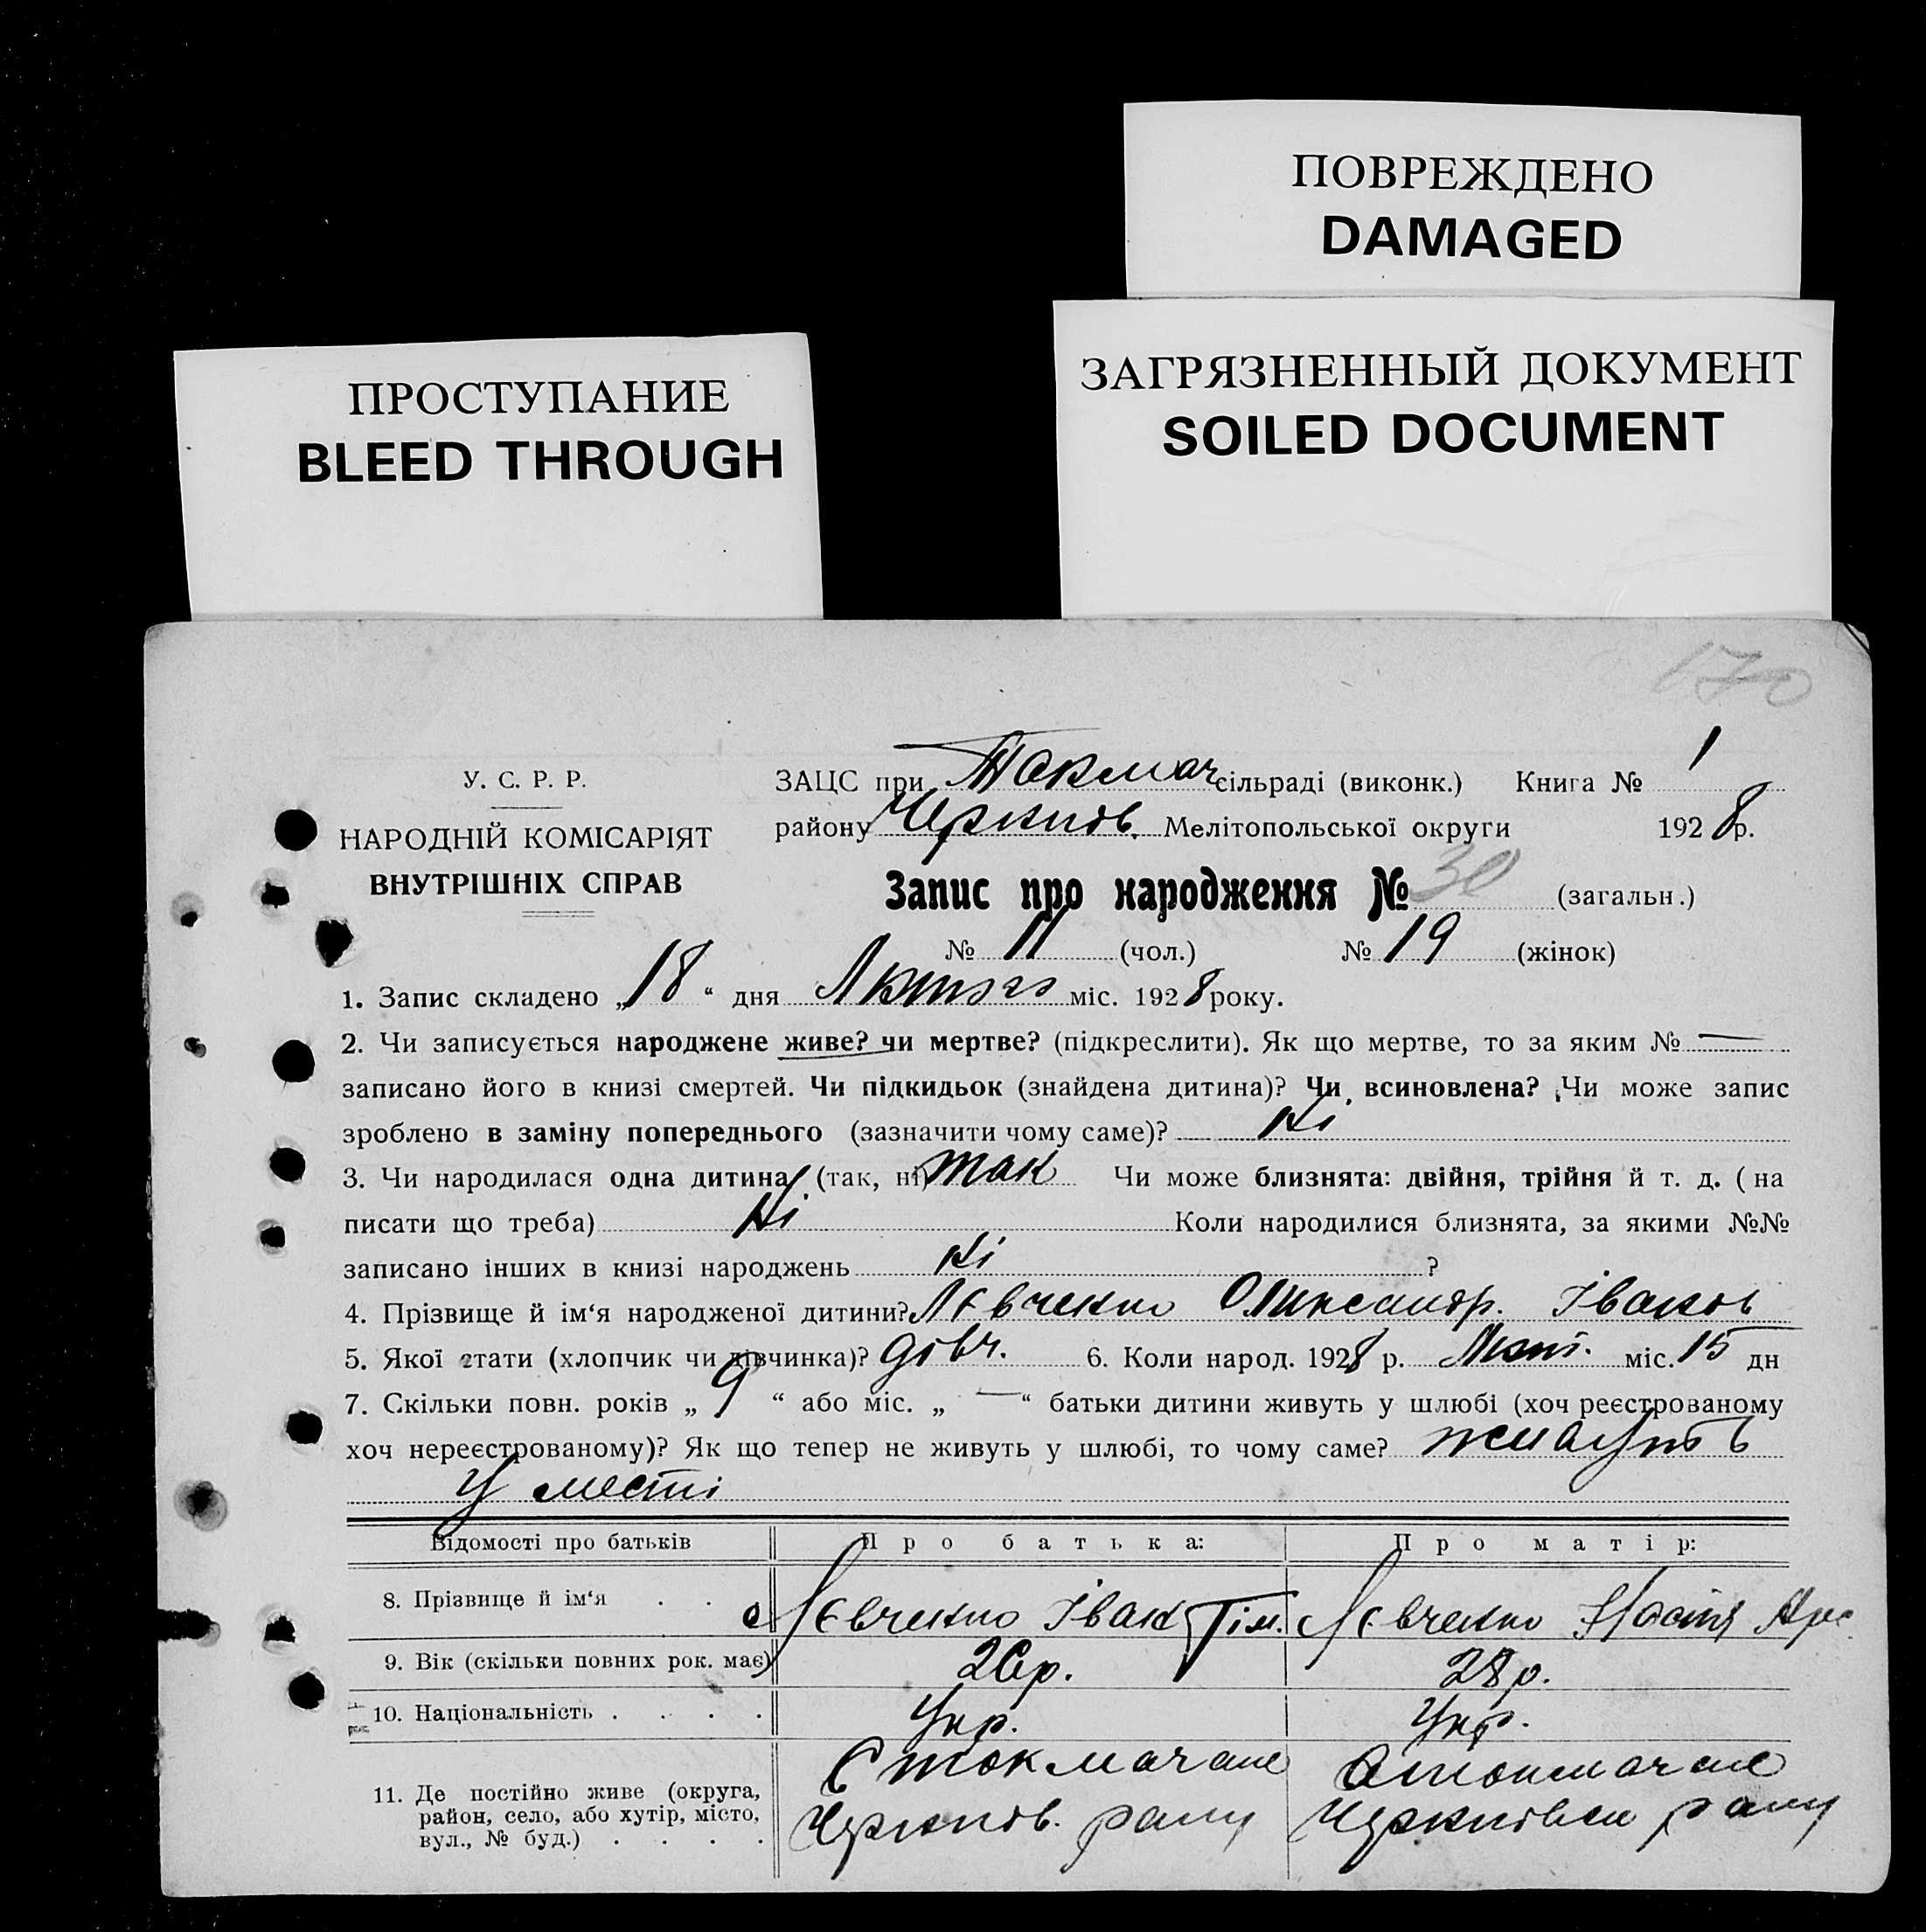 ПОВРЕЖДЕНО
DAMAGED
ЗАГРЯЗНЕННЫЙ ДОКУМЕНТ
SOILED DOCUMENT
ПРОСТУПАНИЕ
BLEED THROUGH
170
У. С. Р. Р.
НАРОДНІЙ КОМІСАРІЯТ
ВНУТРІШНІХ СПРАВ
ЗАЦС при Токмач сільраді (виконк.) Книга № 1
району Мелітопольської округи 1928 р.
Запис про народження № 30 (загальн.)
№ 11 (чол.) № 19 (жінок)
1. Запис складено „18“ дня Лютого міс. 1928 року.
2. Чи записується народжене живе? чи мертве? (підкреслити). Як що мертве, то за яким № —
записано його в книзі смертей. Чи підкидьок (знайдена дитина)? Чи всиновлена? Чи може запис
зроблено в заміну попереднього (зазначити чому саме)? Ні
3. Чи народилася одна дитина (так, ні) так Чи може близнята: двійня, трійня й т. д. (на
писати що треба) Ні Коли народилися близнята, за якими №№
записано інших в книзі народжень Ні ?
4. Прізвище й ім‘я народженої дитини? Лєвченко Олександр. Іванов
5. Якої стати (хлопчик чи дівчинка)? дівч. 6. Коли народ. 1928 р. Лют. міс. 15 дн
7. Скільки повн. років „ 9 “ або міс. „ — “ батьки дитини живуть у шлюбі (хоч реєстрованому
хоч нереєстрованому)? Як що тепер не живуть у шлюбі, то чому саме?
У месті
Відомості про батьків Про батька: Про матір:
8. Прізвище й ім‘я . . Лєвченко Іван Тім. Лєвченко Настя
9. Вік (скільки повних рок. має) 26 р. 28 р.
10. Національність . . . . Укр. Укр.
11. Де постійно живе (округа,
район, село, або хутір, місто,
вул., № буд.) . . . .